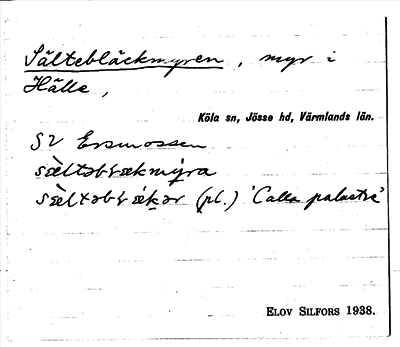 Sältebläckmyren, myr i
Hälle,
Köla sn, Jösse hd, Värmlands län.
SV Ersmossen
(pl.) 'Calla palustre'
ELOV SILFORS 1938.